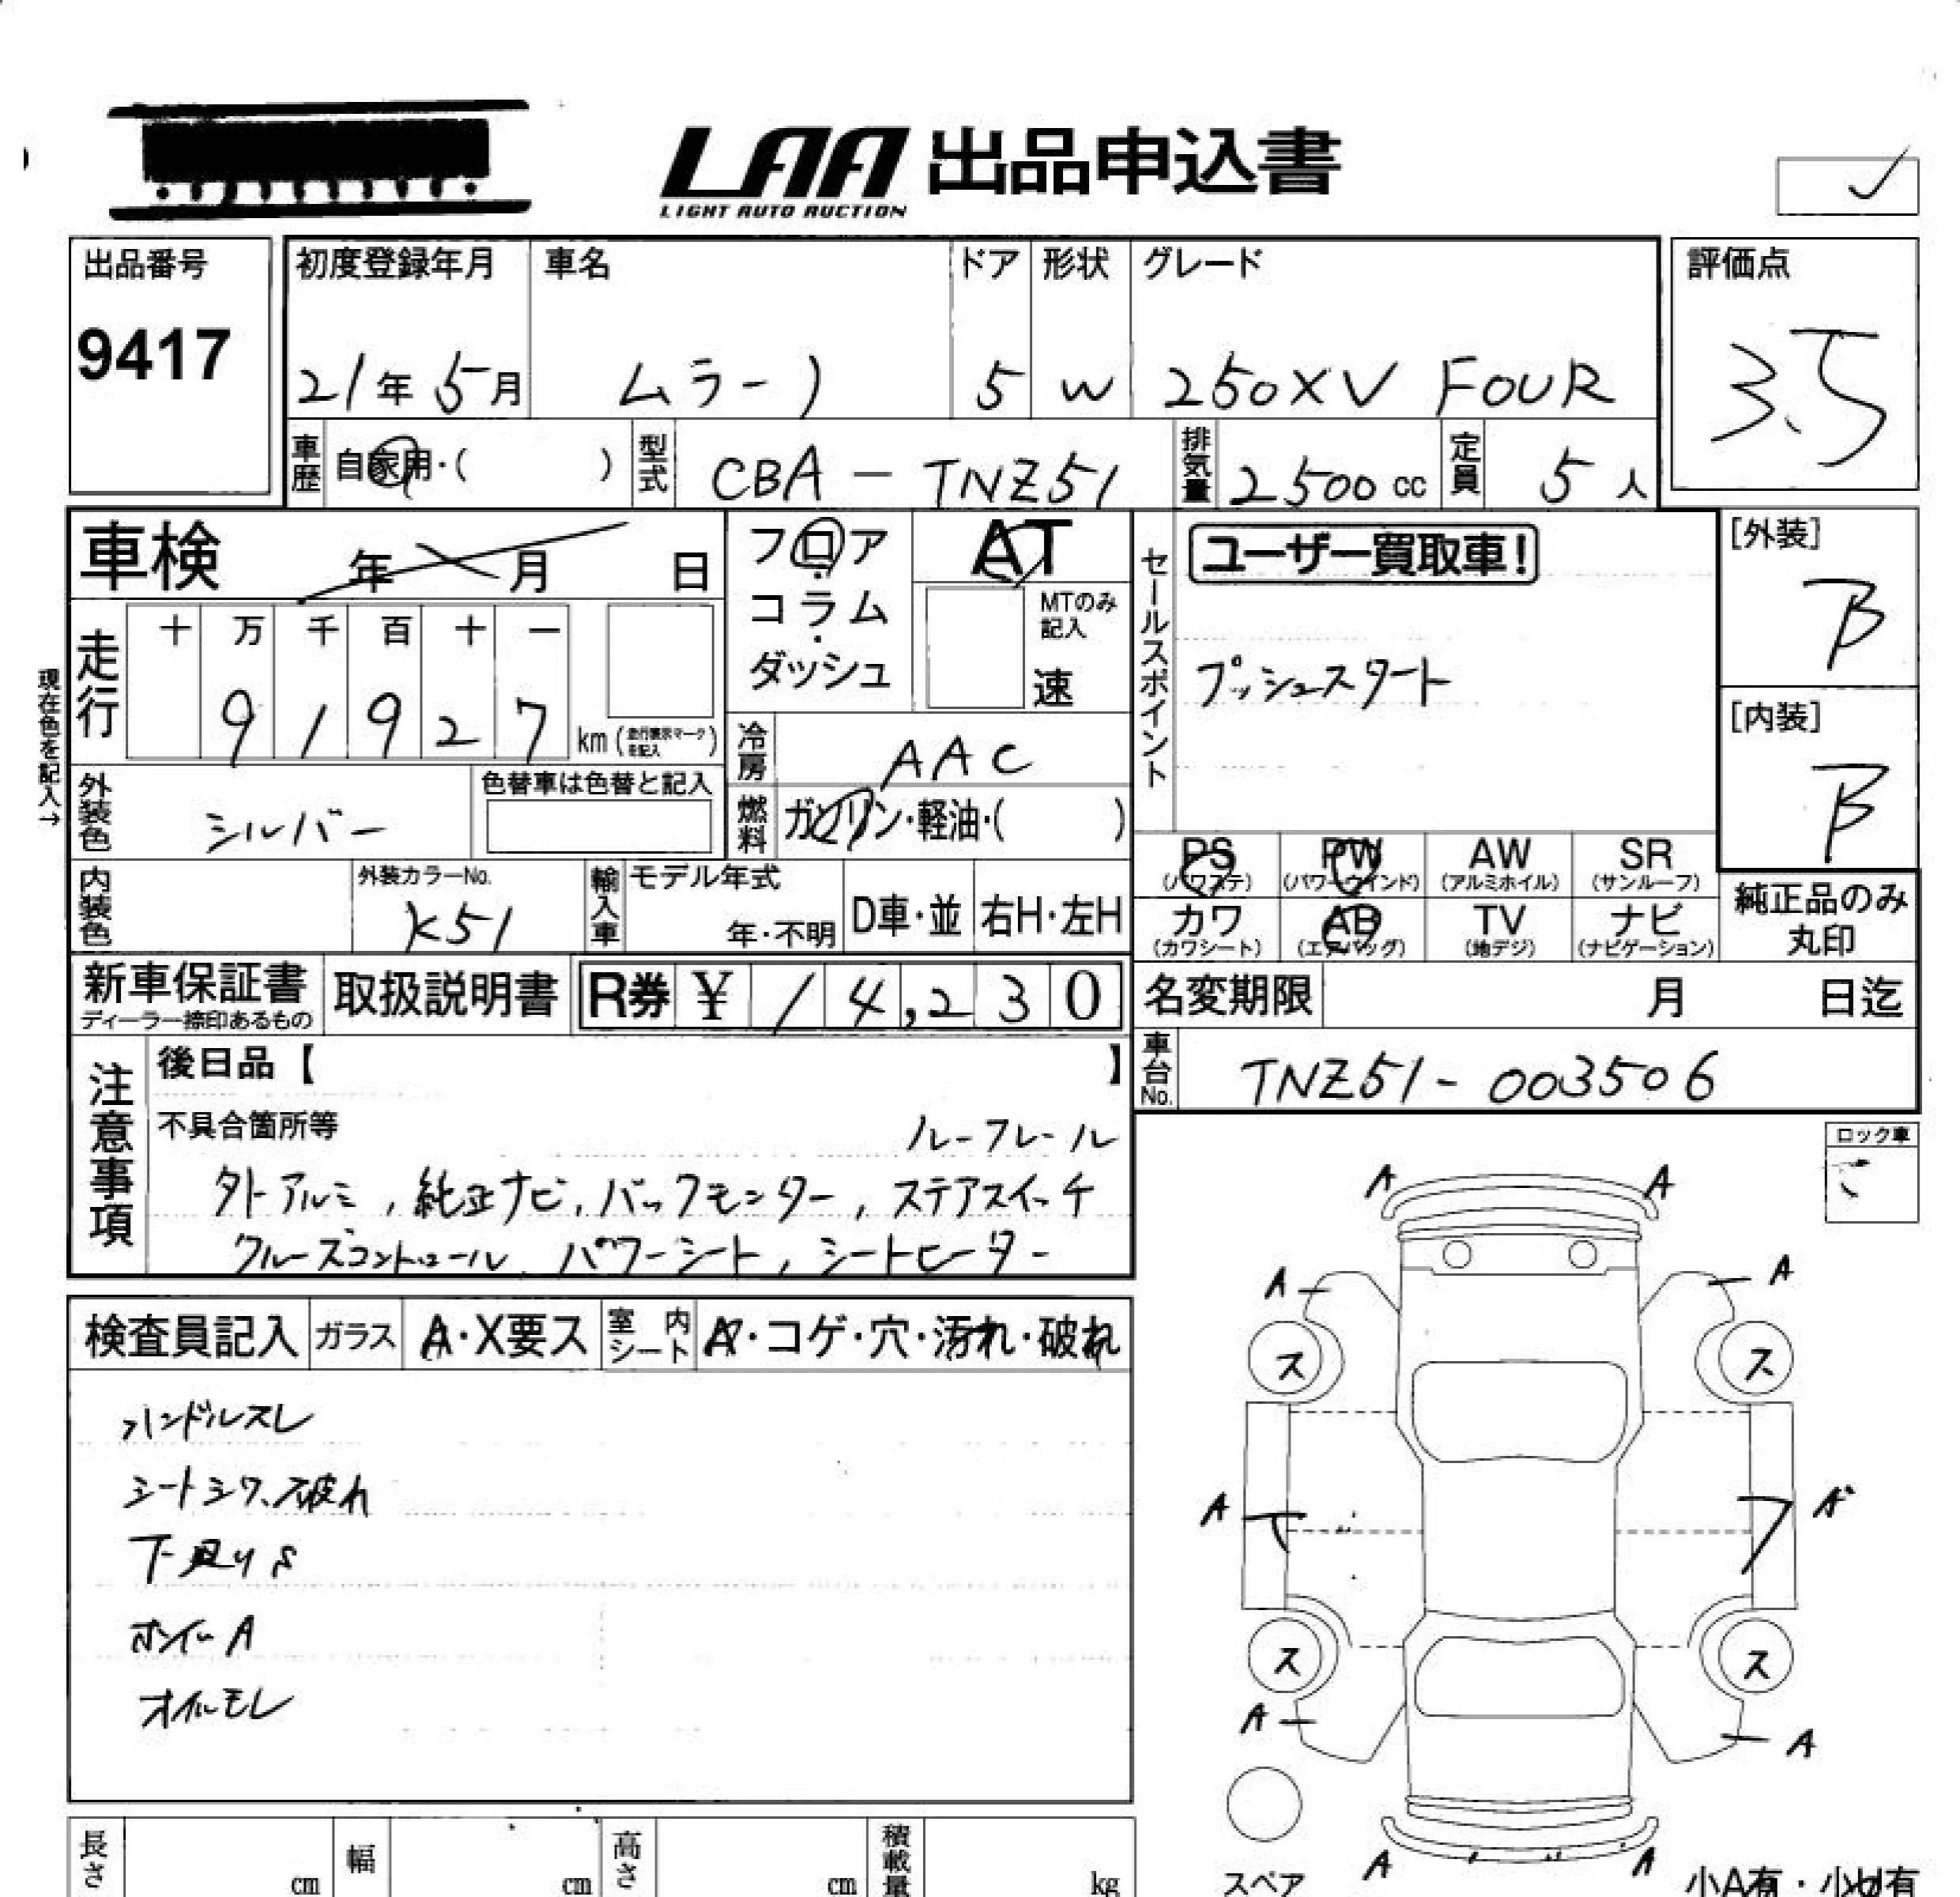 LAA 出品申込書
LIGHT AUTO AUCTION
出品番号
9417
初度登録年月
21年5月
車名
ムラーノ
ドア
5
形状
W
グレード
250XV FOUR
評価点
3.5
車歴
自家用・( )
型式
CBA-TNZ51
排気量
2500cc
定員
5人
車検 年 月 日
フロア・コラム・ダッシュ
AT
MTのみ記入
速
セールスポイント
ユーザー買取車!
プッシュスタート
[外装]
B
[内装]
B
現在色を記入→
走行
十 万 千 百 十 一
9 1 9 2 7 km(走行表示マークを記入)
冷房
AAC
外装色
シルバー
色替車は色替と記入
燃料
ガソリン・軽油・( )
内装色
外装カラーNo.
K51
輸入車
モデル年式
年・不明
D車・並
右H・左H
PS (パワステ)
PW (パワーウインド)
AW (アルミホイル)
SR (サンルーフ)
カワ (カワシート)
AB (エアバッグ)
TV (地デジ)
ナビ (ナビゲーション)
純正品のみ丸印
新車保証書
ディーラー捺印あるもの
取扱説明書
R券 ¥ 14,230
名変期限 月 日迄
車台No.
TNZ51-003506
注意事項
後日品【 】
不具合箇所等
ルーフレール
外アルミ, 純正ナビ, バックモニター, ステアスイッチ
クルーズコントロール, パワーシート, シートヒーター
ロック車
検査員記入
ガラス A・X要ス
室内シート A・コゲ・穴・汚れ・破れ
ハンドルスレ
シートシワ、破れ
下回りS
ホイールA
オイルモレ
A A
A A
ス ス
A
ス ス
A A
A A
スペア
小A有・小U有
長さ cm
幅 cm
高さ cm
積載量 kg